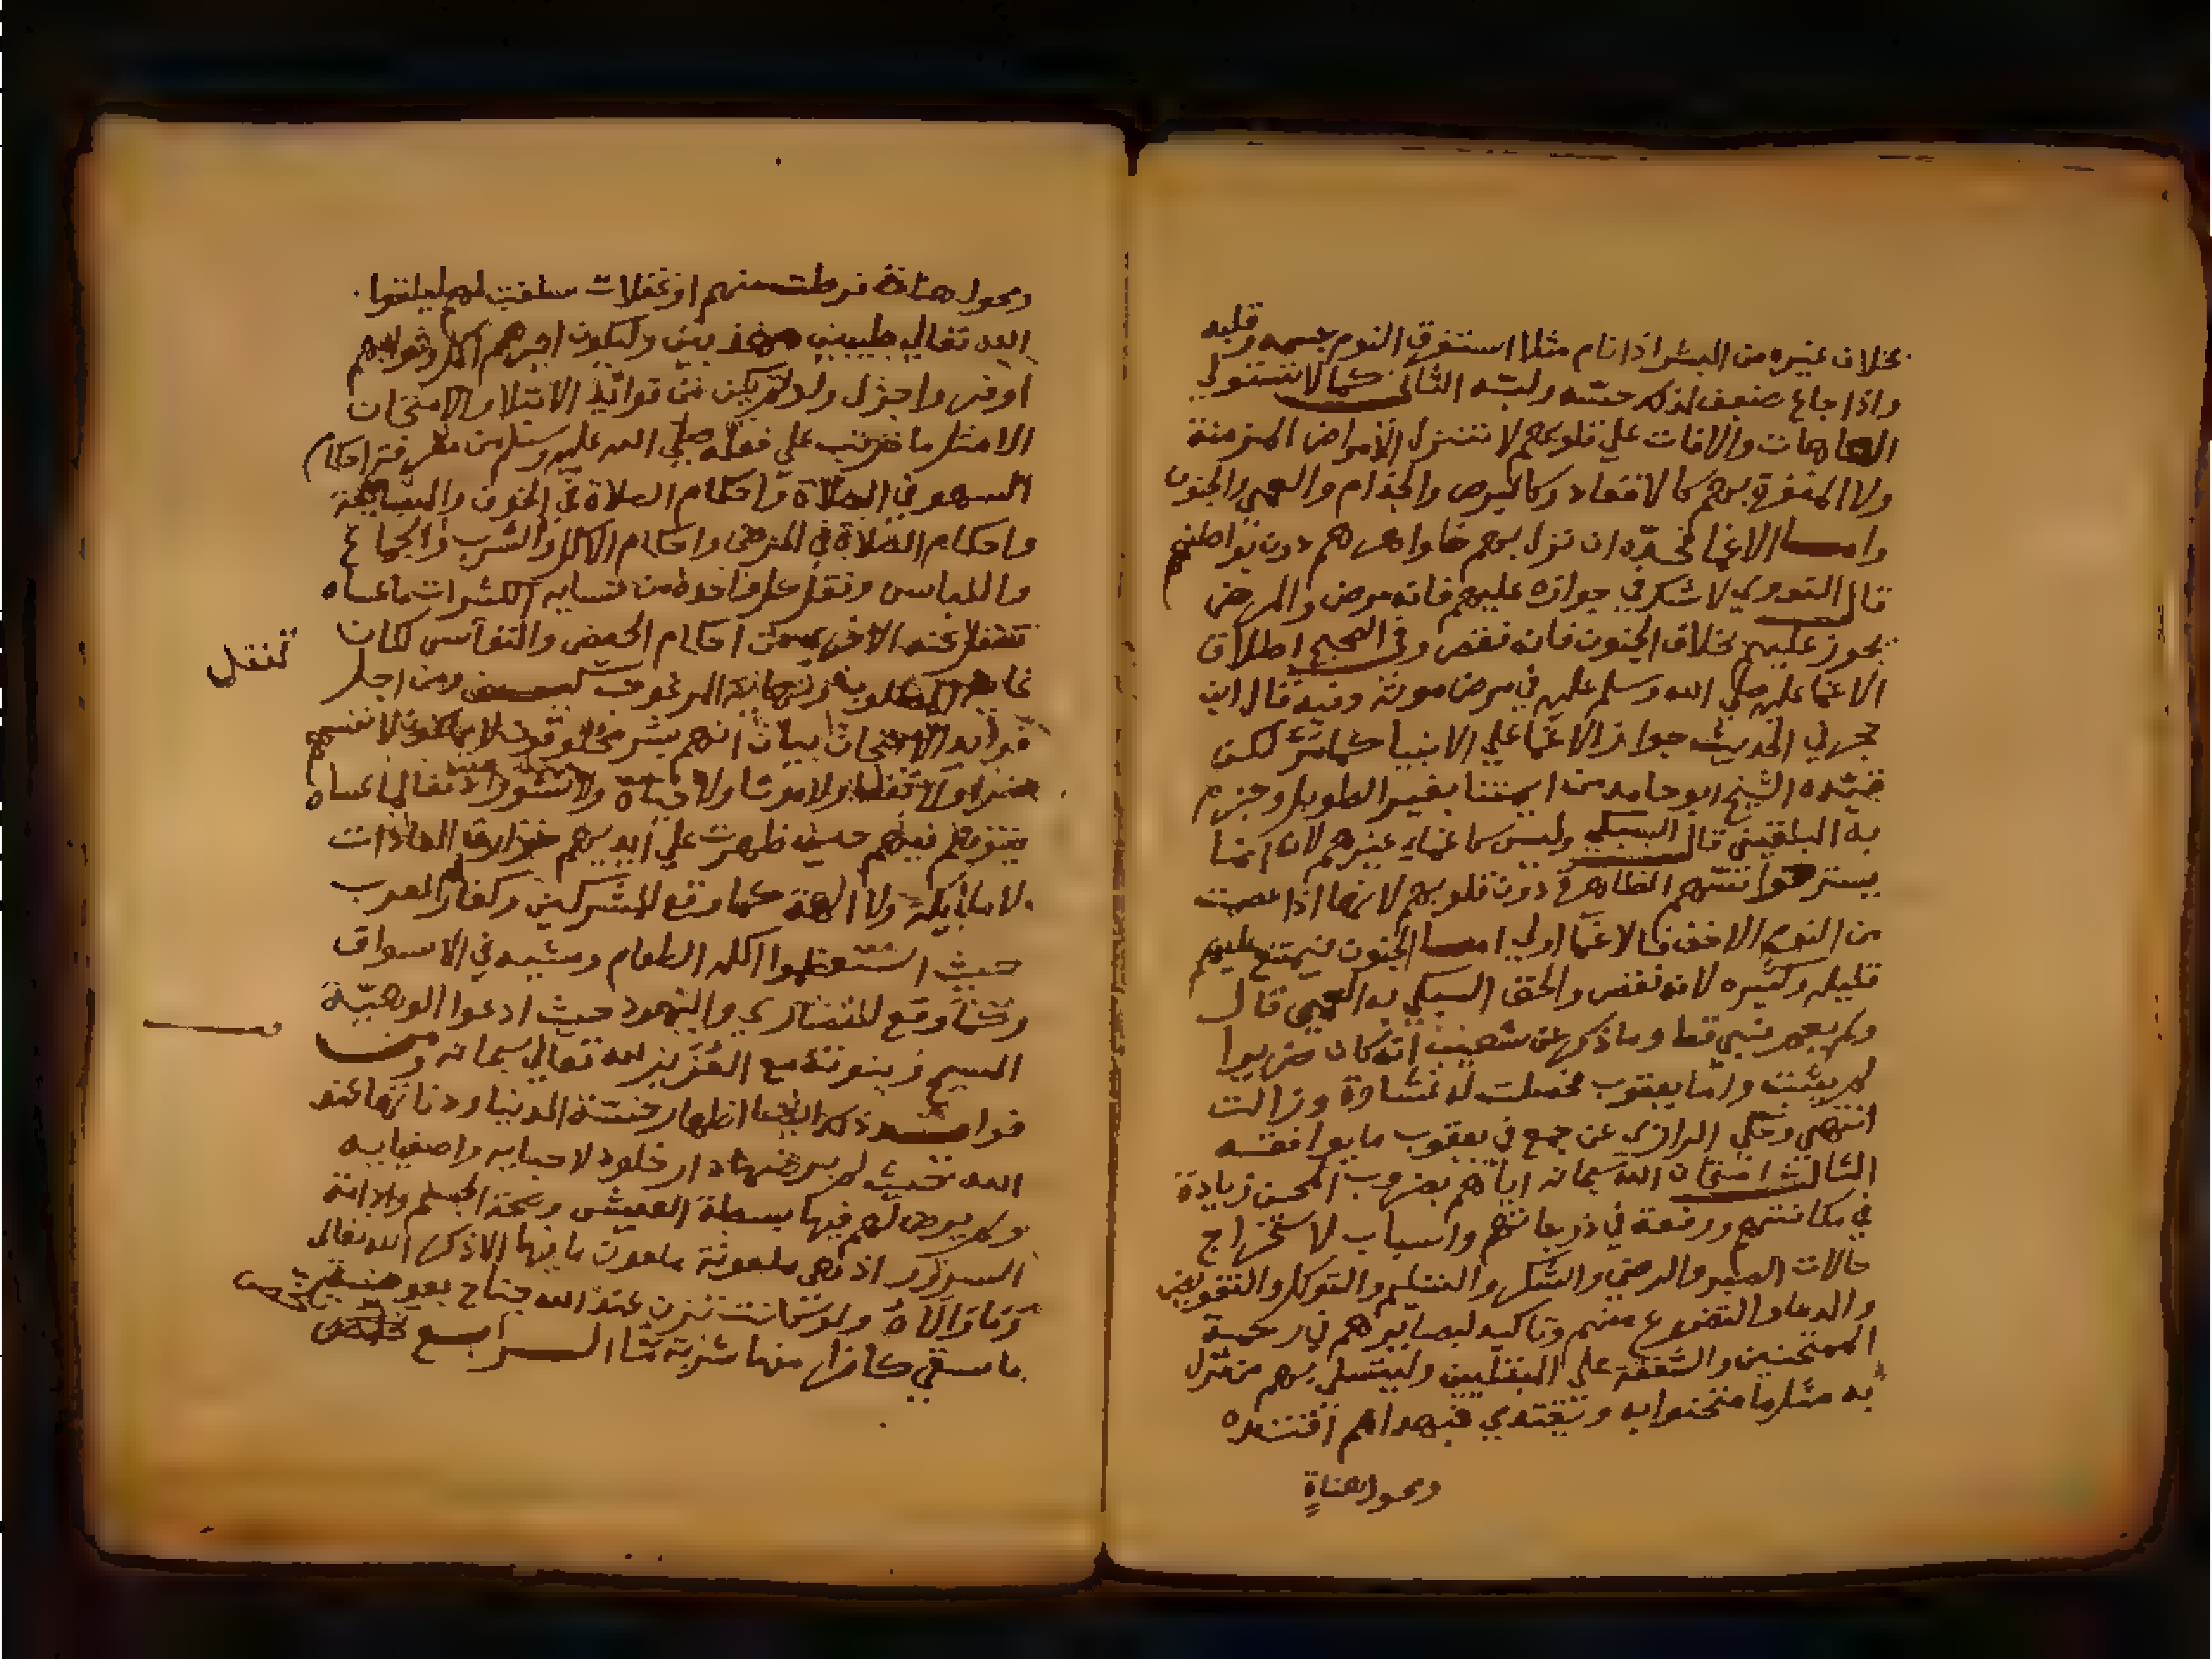 بخلاف غيره من البشر اذا نام مثلا استغرق النوم جسمه وقلبه
واذا جاع ضعف لذلك جسمه ولبه الثاني كما لا تستولي
العاهات والافات علي قلوبهم لا تتنزل الامراض المزمنة
ولا المنفرة بهم كالاقعاد وكالبرص والجذام والعمي والجنون
واما الاغما فحده ان نزل بهم ظواهرهم دون بواطنهم
قال النووي لا شك في جوازه عليهم فانه مرض والمرض
يجوز عليهم بخلاف الجنون فانه نقص وفي الصحيح اطلاق
الاغما عليه صلي الله وسلم عليه في مرض موته وفيه قال ابن
حجر في الحديث جواز الاغما علي الانبيا كما لكن
قيده الشيخ ابو حامد من ايمتنا بغير الطويل وجزم
به البلقيني قال السبكي وليس كاغماء غيرهم لانه انما
يستر حواسهم الظاهرة دون قلوبهم لانها اذا عصمت
من النوم الاخف فالاغما اولي اما الجنون فيمتنع عليهم
قليله وكثيره لانه نقص والحق السبكي به العمي قال
ولم يعم نبي قط وما ذكر عن شعيب انه كان ضريرا
لم يثبت واما يعقوب فحصلت له غشاوة وزالت
انتهي وحكي الرازي عن جمع في يعقوب ما يوافقه
الثالث امتحان الله سبحانه اياهم بضروب المحن زيادة
في مكانتهم ورفعة في درجاتهم واسباب لاستخراج
حالات الصبر والرضي والشكر والتسليم والتوكل والتفويض
والدعا والتضرع منهم وتاكيد لبصايرهم في رحمة
الممتحنين والشفقة علي المبتليين وليتسلي بهم من نزل
به مثل ما امتحنوا به ويقتدي فبهداهم اقتده
ومحو لهناة
ومحو لهناة فرطت منهم او غفلات سلفت لهم ليلقوا
الله تعالي طيبين مهذبين وليكون اجرهم اكمل وثوابهم
اوفي واجزل ولو لم يكن من فوائد الابتلا والامتحان
الا مثل ما ترتب علي فعله صلي الله عليه وسلم من معرفة احكام
السهو في الصلاة واحكام الصلاة في الخوف والمسايفة
واحكام الصلاة في المرض واحكام الاكل والشرب والجماع
واللباس ونقل كل واحدة من نسايه الكثيرات ما عساه
تنقل عنه الاخري من احكام الحيض والنفاس لكان
تنقل
غاية المطلوب ونهاية المرغوب ومن اجل
فوايد الامتحان بيان انهم بشر مخلوقون لا يملكون لانفسهم
ضرا ولا نفعا ولا موتا ولا حياة ولا نشورا لما عساه
يتوهم فيهم حين ظهرت علي ايديهم خوارق العادات
لا ملايكة ولا الهة كما وقع للمشركين وكفار العرب
حيث استعظموا اكله الطعام ومشيه في الاسواق
وكما وقع للنصاري واليهود حيث ادعوا الوهية
المسيح وبنوته مع العزير لله تعالي سبحانه ومن
فوايد ذلك ايضا اظهار خسة الدنيا ودناءتها عند
الله حيث لم يرضها دار خلود لاحبايه واصفيايه
ولم يرض لهم فيها بسطة العيش وصحة الجسم وادامة
السرور اذ هي ملعونة ملعون ما فيها الا ذكر الله تعالي
وما والاه ولو كانت تزن عند الله جناح بعوضة
ما سقي كافرا منها شربة ما الرابع